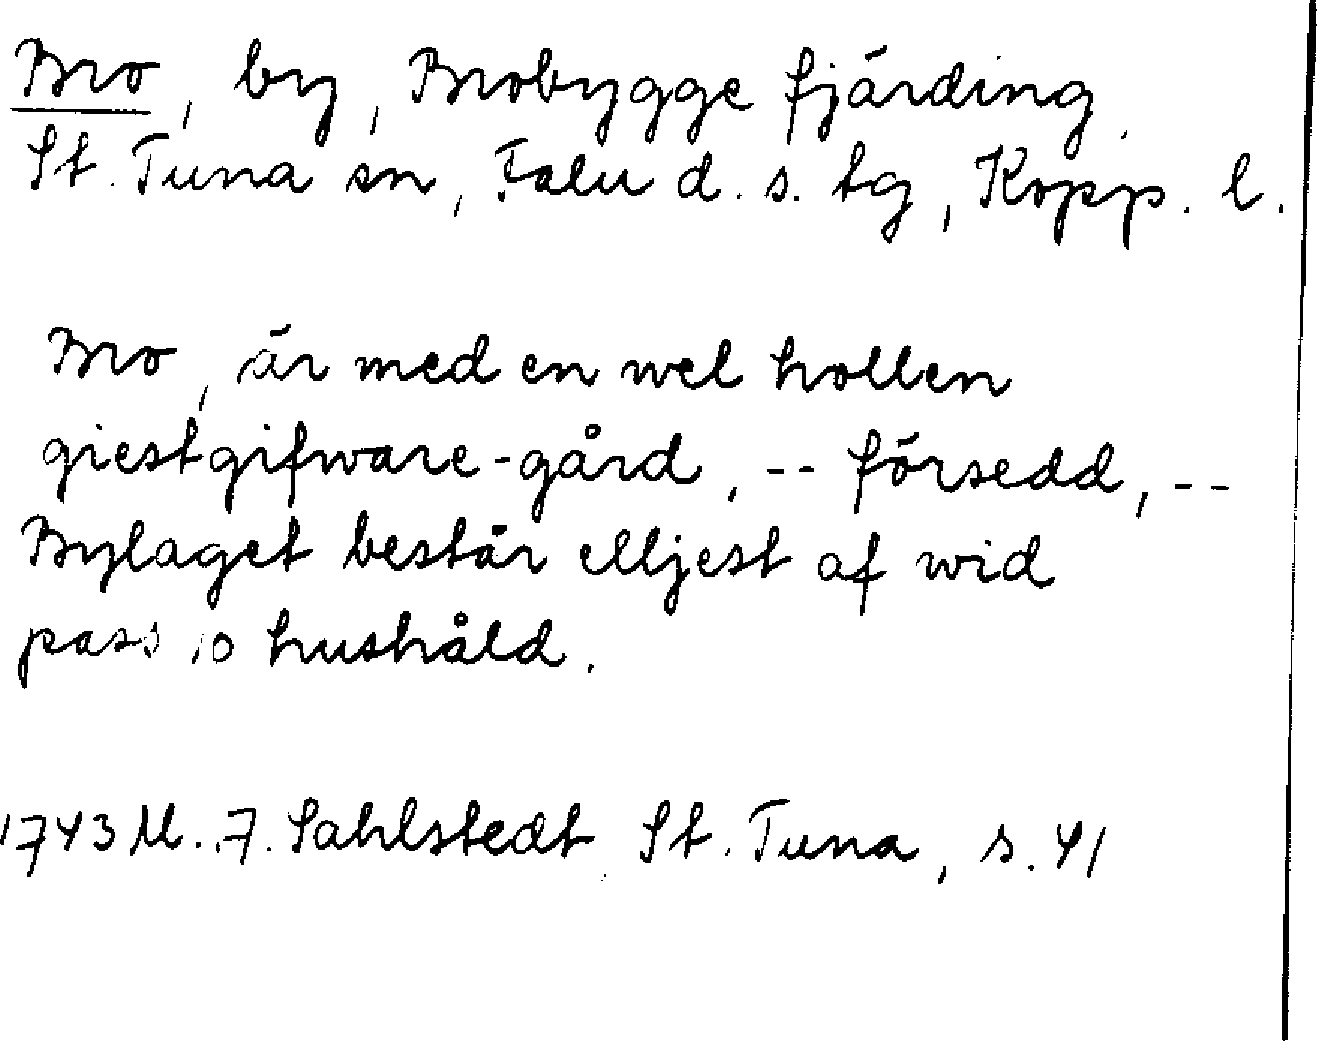 Bro, by, Brobygge fjärding.
St. Tuna sn, Falu d. s. tg, Kopp. l.
Bro, är med en wel hollen
giestgifware-gård, -- försedd, --
Bylaget består elljest af wid
pass 10 hushåld.
1743 M. F. Sahlstedt St. Tuna, s. 41